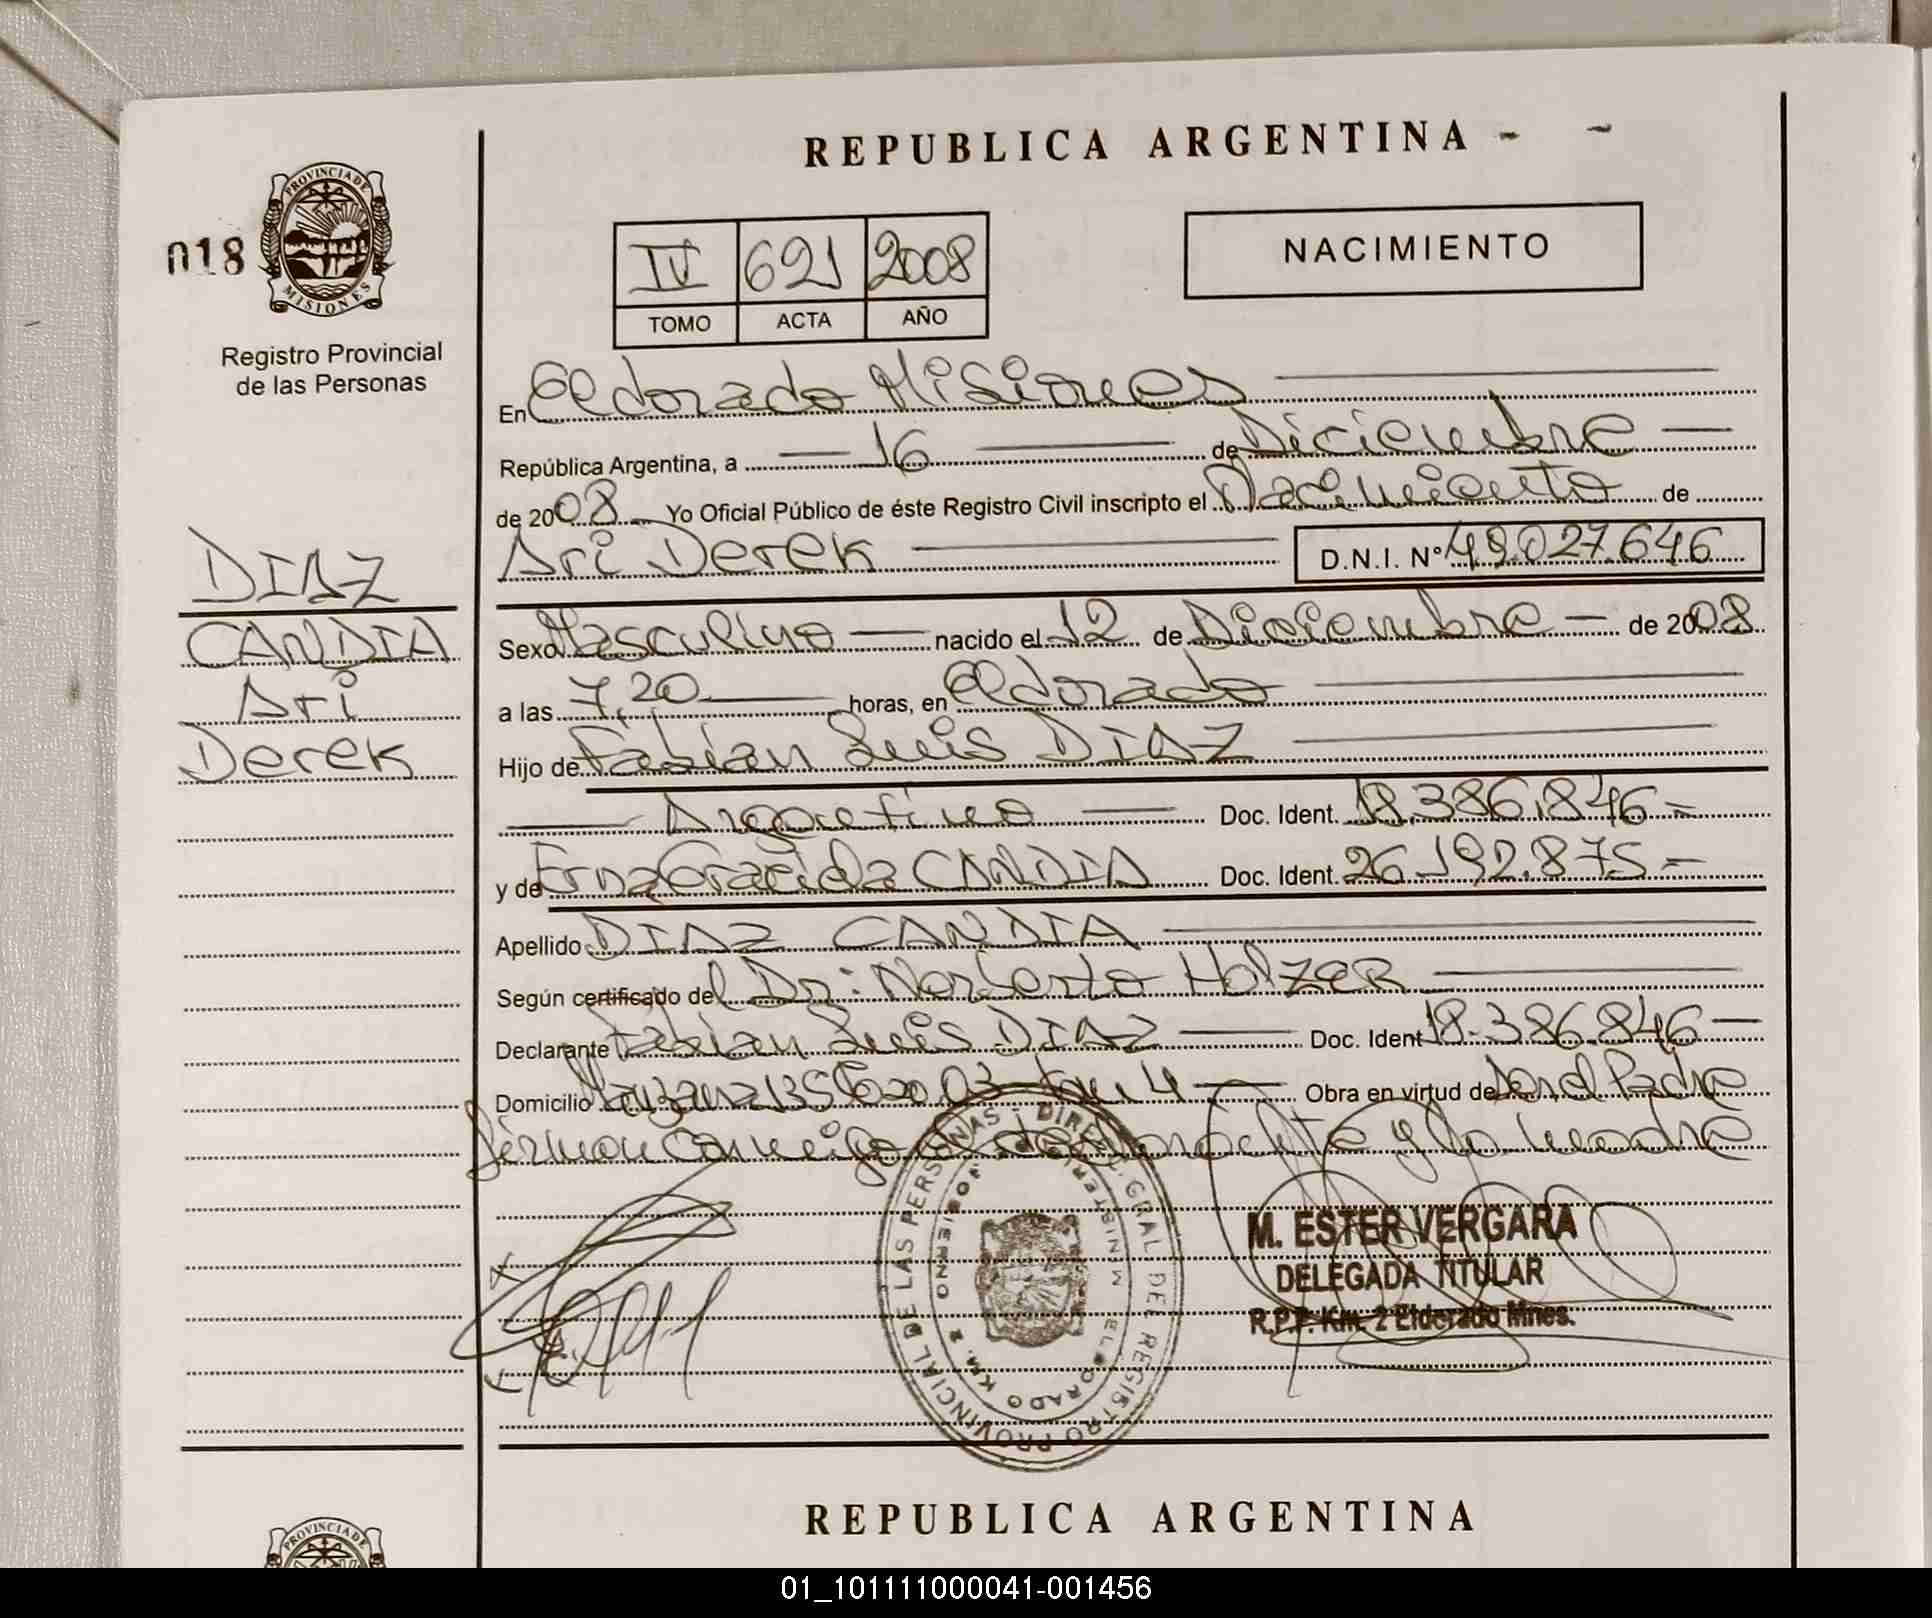 REPUBLICA ARGENTINA
018
PROVINCIA DE
MISIONES
Registro Provincial
de las Personas
IV 621 2008
TOMO ACTA AÑO
NACIMIENTO
En Eldorado Misiones
República Argentina, a 16 de Diciembre
de 2008 Yo Oficial Público de éste Registro Civil inscripto el Nacimiento de
Ari Derek D.N.I. Nº 49.027.646
DIAZ
CANDIA
Ari
Derek
Sexo Masculino nacido el 12 de Diciembre de 2008
a las 7,20 horas, en Eldorado
Hijo de Fabian Luis DIAZ
Argentino Doc. Ident. 18.386.846=
y de Erna Gracida CANDIA Doc. Ident. 26.192.875=
Apellido DIAZ CANDIA
Según certificado del Dr: Norberto HOLZER
Declarante Fabian Luis DIAZ Doc. Ident 18.386.846
Domicilio Manzana 4 Obra en virtud de Ser el Padre
firman conmigo el declarante y la madre
DIREC. GRAL DEL REGISTRO PROVINCIAL DE LAS PERSONAS
MINISTERIO GOBIERNO
ELDORADO KM. 2
M. ESTER VERGARA
DELEGADA TITULAR
R.P.P. Km. 2 Eldorado Mnes.
REPUBLICA ARGENTINA
PROVINCIA DE
01_101111000041-001456